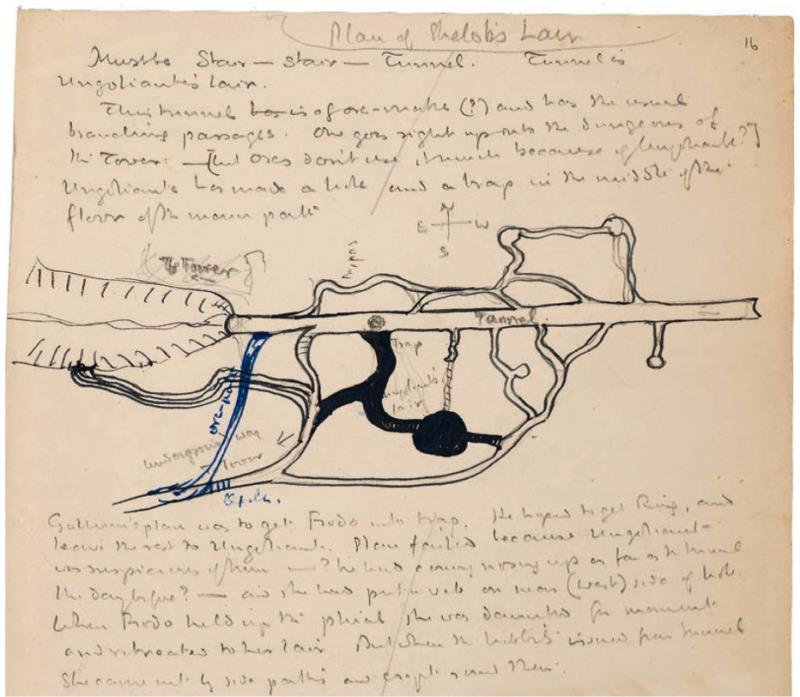 Plan of Shelob's Lair
16
Must be Stair — stair — Tunnel. Tunnel is
Ungoliant's lair.
This tunnel is of orc-make (?) and has the usual
branching passages. One goes right up into the dungeons of
the Tower — [but orcs don't use it much because of Ungoliant?]
Ungoliant has made a hole and a trap in the middle of the
floor of the main path
N
E W
S
The Tower
Tunnel.
trap
Ungoliant's
lair
orc-
underground way
Tower
Gollum's plan was to get Frodo into trap. He hoped to get Ring, and
leave the rest to Ungoliant. Plan failed because Ungoliant
was suspicious of him — ? he had coming nosing up as far as the tunnel
the day before? — and she had put webs on near (west) side of hole.
When Frodo held up the phial she was daunted for moment
and retreated to her lair. But when the hobbits issued from tunnel
she came out by side paths and crept round them.